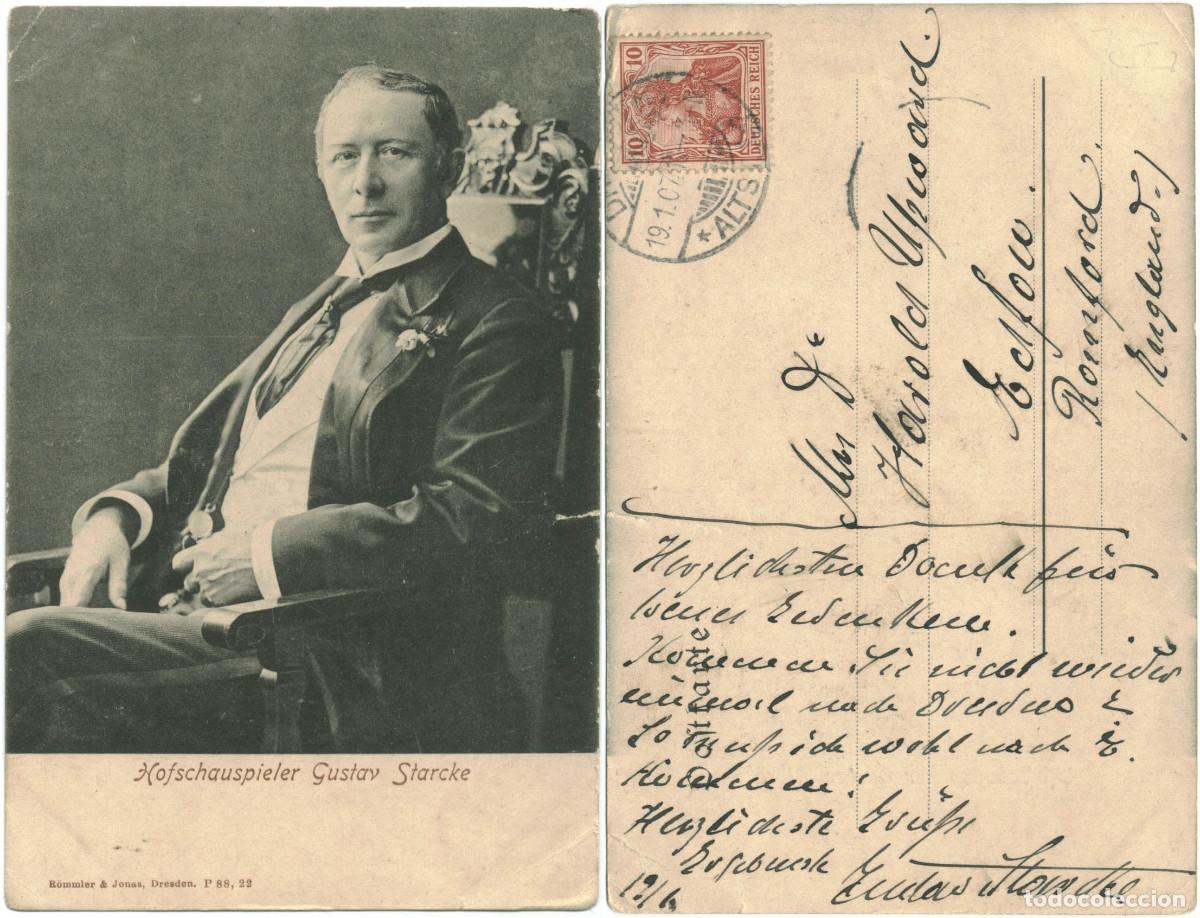 Hofschauspieler Gustav Starcke
Römmler & Jonas, Dresden. P 88, 22
10
10
DEUTSCHES REICH
19.1.07
* ALTST
Harold Upward.
Romford.
(England.)
Postkarte
Herzlichsten Dank für
Kommen Sie nicht wieder
einmal nach Dresden?
So muß ich wohl nach E.
kommen!
Herzlichste Grüße
Ergebenst
Gustav Starcke
19/1
todocoleccion
todocoleccion.net